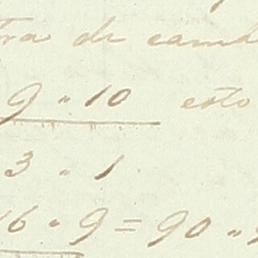 tra de camb
9 " 10 esto
3 " 1
16 " 9 = 90 "